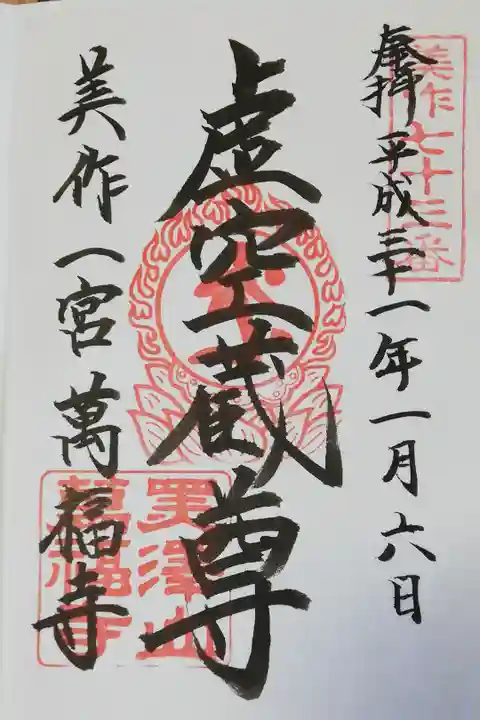 美作七十三番
奉拝 平成三十一年一月六日
虚空蔵尊
美作一宮 萬福寺
萬福寺